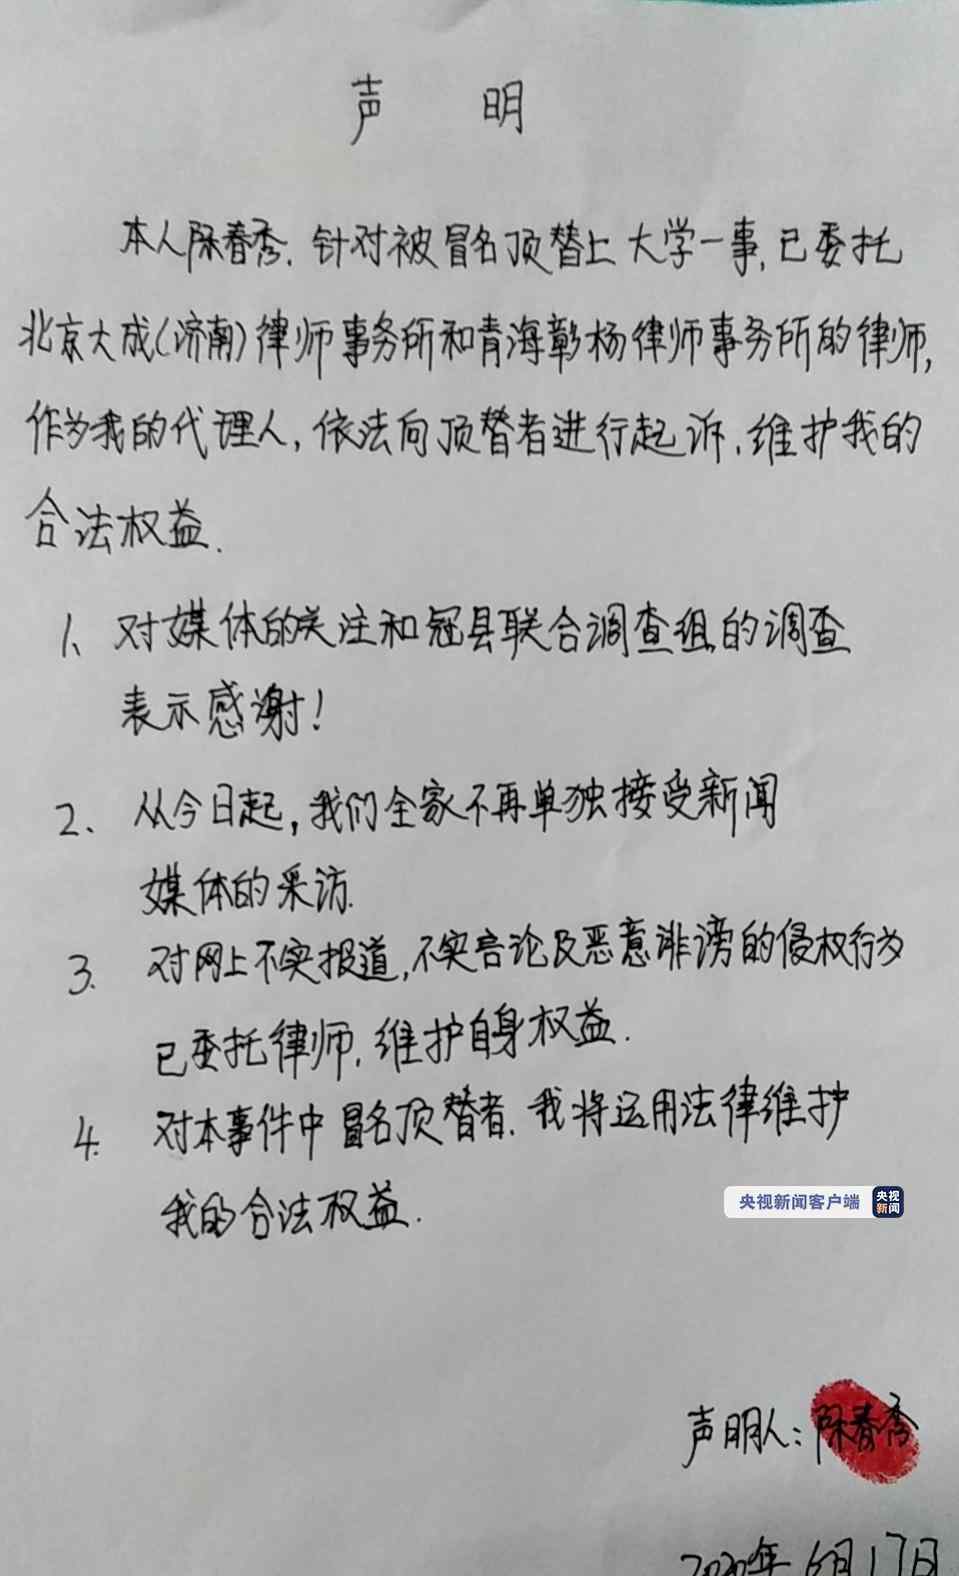 声 明
本人陈春秀.针对被冒名顶替上大学一事,已委托
北京大成(济南)律师事务所和青海彰杨律师事务所的律师,
作为我的代理人,依法向顶替者进行起诉.维护我的
合法权益.
1、对媒体的关注和冠县联合调查组的调查
表示感谢!
2、从今日起,我们全家不再单独接受新闻
媒体的采访.
3.对网上不实报道,不实言论及恶意诽谤的侵权行为
已委托律师.维护自身权益.
4.对本事件中冒名顶替者.我将运用法律维护
我的合法权益.
央视新闻客户端 央视新闻
声明人:陈春秀
2020年6月17日